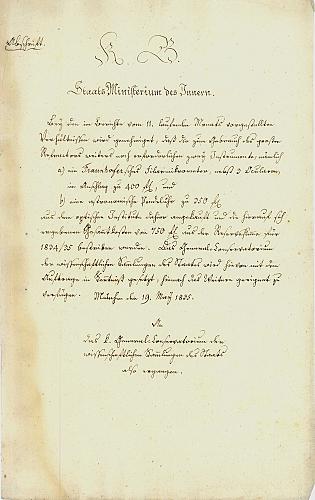 Abschrift.
K. B.
Staats Ministerium des Innern.
Bey den im Berichte vom 11. laufenden Monats vorgestellten
Verhältnissen wird genehmiget, daß die zum Gebrauch des großen
Refractors weiters noch erforderlichen zwey Instrumente, nämlich
a) ein Fraunhofer'sches Filarmikrometer, nebst 2 Ocularen,
im Anschlag zu 400 fl, und
b) eine astronomische Pendeluhr zu 350 fl
aus dem optischen Institute dahier angekauft und die hiernach sich
ergebenen Gesamtkosten von 750 fl aus der Reserve für
1834/35 bestritten werden. Das General-Conservatorium
der wissenschaftlichen Sammlungen des Staats wird hievon mit dem
Auftrage in Kenntniß gesetzt, hienach das Weitere geeignet zu
verfügen. München den 19. May 1835.
An
das k. General-Conservatorium der
wissenschaftlichen Sammlungen des Staats
also ergangen.